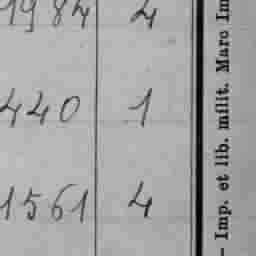 1984 4
440 1
1561 4
– Imp. et lib. milit. Marc Im